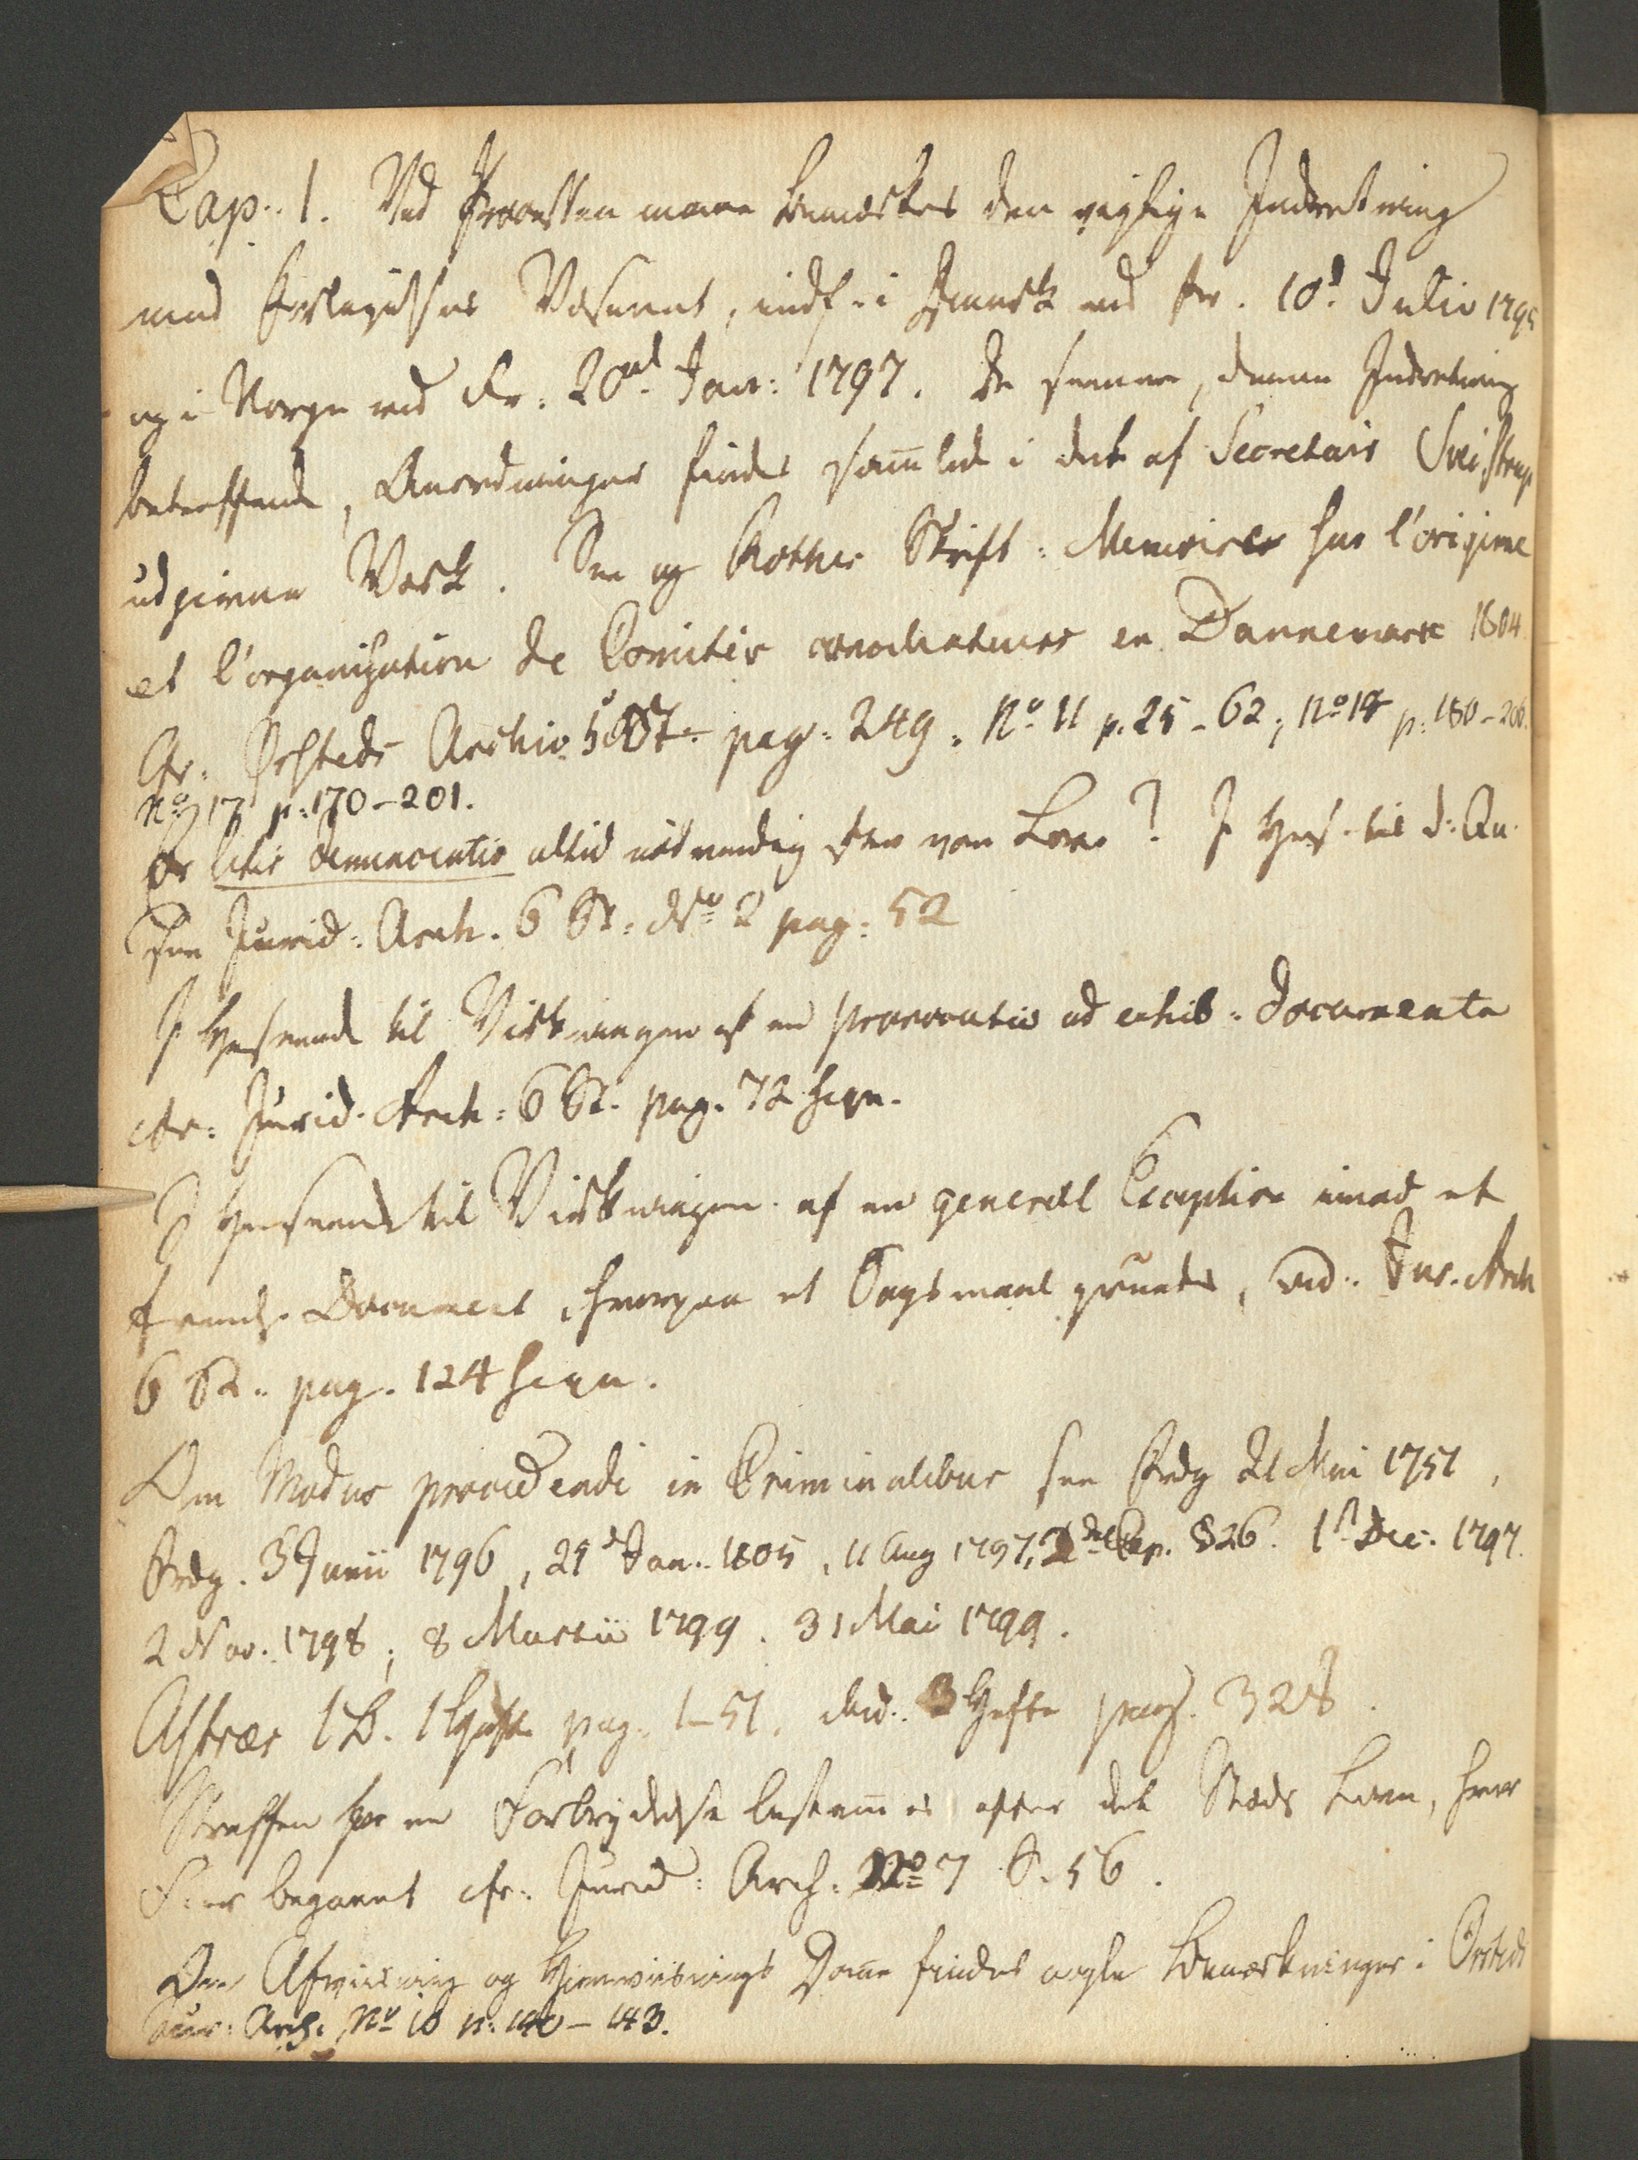 Cap. 1. Ved Processen maae bemærkes den vigtige Indretning
med Forligelses Væsenet, indf. i Dannark ved Fr. 10d. Julio 1795
og i Norge ved Fr. 20de Jan: 1797. De senere, denne Indretning
betræffende, Anordninger findes samlede i det af Secretair Sveistrup
udgivne Værk. See og Rothes Skrift: Memoires sur l'origine
et l'organisation de Comités conciliateurs en Dannemarc 1804.
Cfr. Ørsteds Archiv 5 St. pag. 249. No 11 p. 25-62; No 14 p. 180-200.
No 17 p. 170-201.
Er litis denunciatio altid nødvendig efter vor Lov? I Hens. til d: Qu.
see Jurid: Arch. 6 St. No 2 pag: 52
I Henseende til Virkningen af en provocatio ad exhib. documenta
cfr: Jurid. Arch: 6 St. pag. 72 seqv.
I Henseende til Virkningen af en generel Exception imod et
fremlz. Document, hvorpaa et Søgsmaal grundes, vid. Jur. Arch
6 St. pag. 124 seqv.
Om Modus procedendi in Criminalibus see Frdg 21 Mai 1751,
Frdg. 3 Junii 1796, 25d Jan. 1805, 11 Aug 1797, 2det Cap. §26. 1ste Dec. 1797.
2 Nov. 1798; 8 Martii 1799. 31 Mai 1799.
Astræa 1 B. 1 Hefte pag. 1-51. ibid. 3 Hefte pag. 328.
Straffen for en Forbrydelse bestemes efter det Steds Love, hvor
den er begaaet cfr. Jurid: Arch: No 7 S. 56.
Om Afviisning og Hiemviisnings Dome findes nogle Bemærkninger i Ørsteds
Jur: Arch: No 10 p. 140-143.